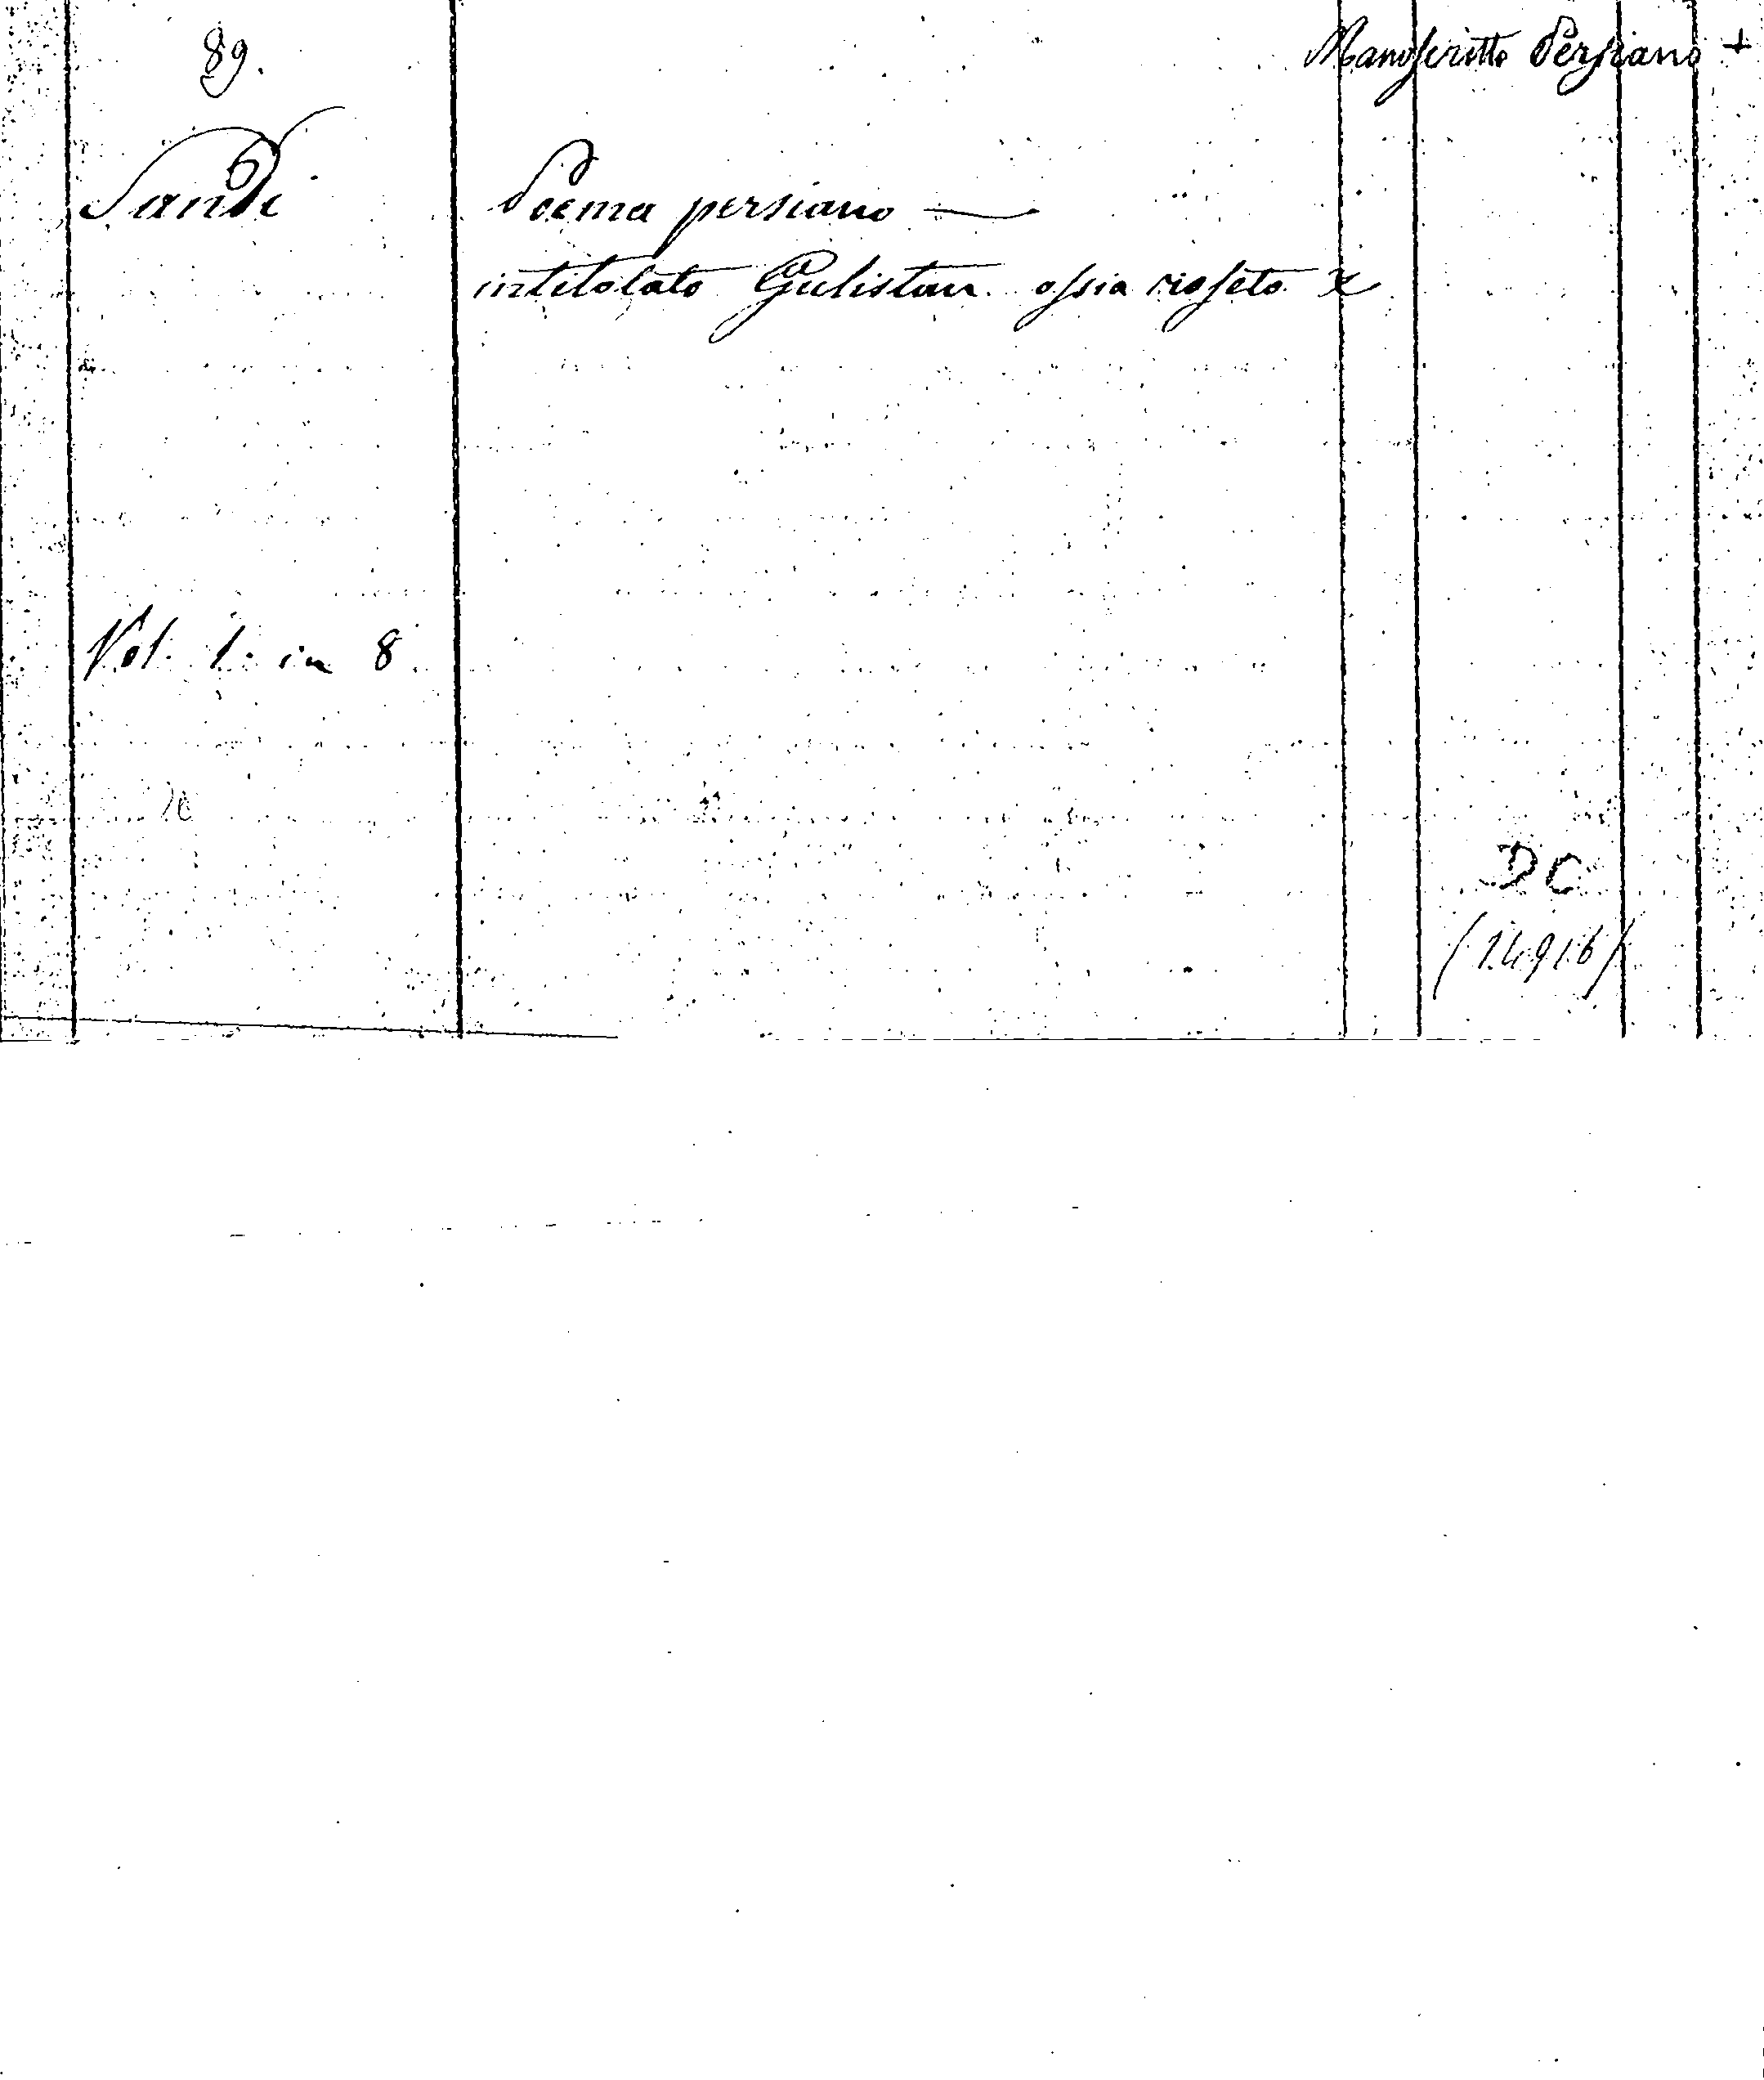 89.
Manoscritto Persiano +
Sandi
Poema persiano —
intitolato Gulistan ossia roseto x
Vol. 1. in 8.
DC
(14916)